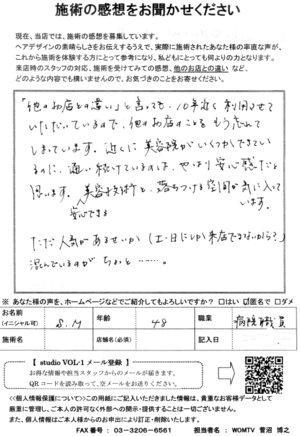 施術の感想をお聞かせください
現在、当店では、施術の感想を募集しています。
ヘアデザインの素晴らしさをお伝えするうえで、実際に施術されたあなた様の率直な声が、
これから施術を体験する方にとって参考になり、私どもにとっても何よりの力となります。
来店時のスタッフの対応、施術を受けてみての感想、他のお店との違い など、
どのような内容でも構いませんので、お気づきのことをお寄せください。
「他のお店との違い」と言っても、10年近く利用させて
いただいているので、他のお店のことをもう忘れて
しまっています。近くに美容院がいくつかできてい
るのに、通い続けているのは、やはり安心感だと
思います。美容技術と、落ちつける空間が気に入って
安心できる
います。
ただ人気があるせいか(土・日にしか来店できないから?)
混んでいるのがちょっと……。
※ あなた様の声を、ホームページなどでご紹介してもよろしいですか? □はい ☑匿名で □ダメ
名前 S.M 年齢 48 職業 病院職員
(イニシャル可)
施術名 店舗名(必須) 記入日
【 studio VOL-1 メール登録 】
お得な情報や担当スタッフからのメールが届きます。
QRコードを読み取って、空メールをお送りください。
<<個人情報保護について>>この用紙にご記入いただきました情報は、貴重なお客様データとして
厳重に管理し、ご本人の許可なく外部への開示・提供することは一切ございません。
また、個人情報はご本人様からのお申出により訂正・削除いたします。
FAX番号 : 03-3206-6561 WOMTV 菅沼 博之